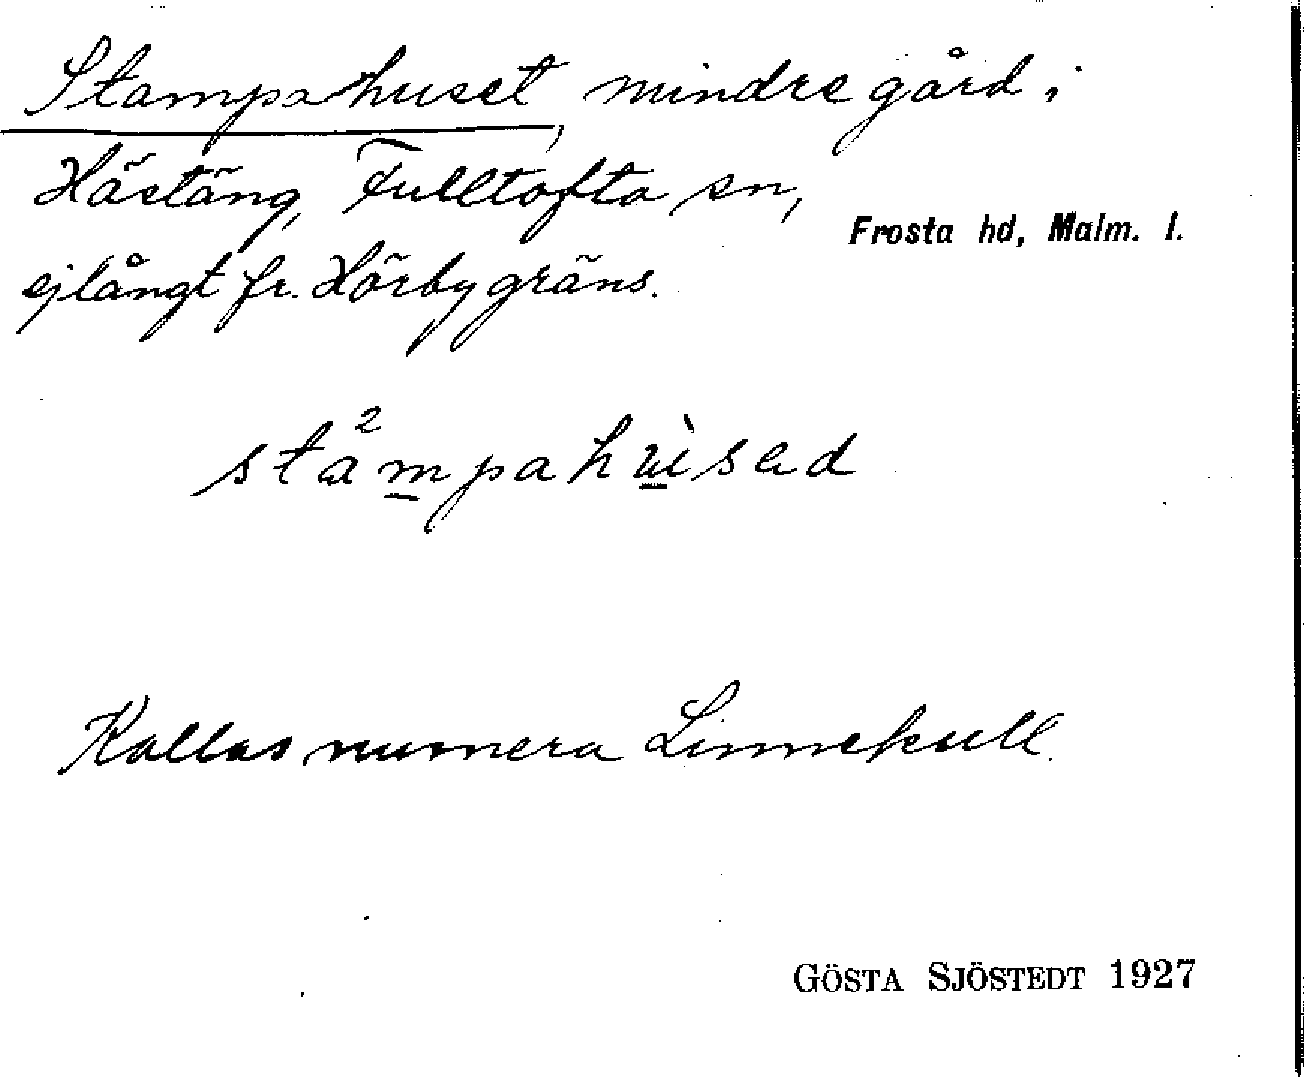 Stampahuset, mindre gård i
Hästäng, Fulltofta sn,
Frosta hd, Malm. l.
ej långt fr. Hörby gräns.
sta²mpahùsad
Kallas numera Linnekull.
GÖSTA SJÖSTEDT 1927